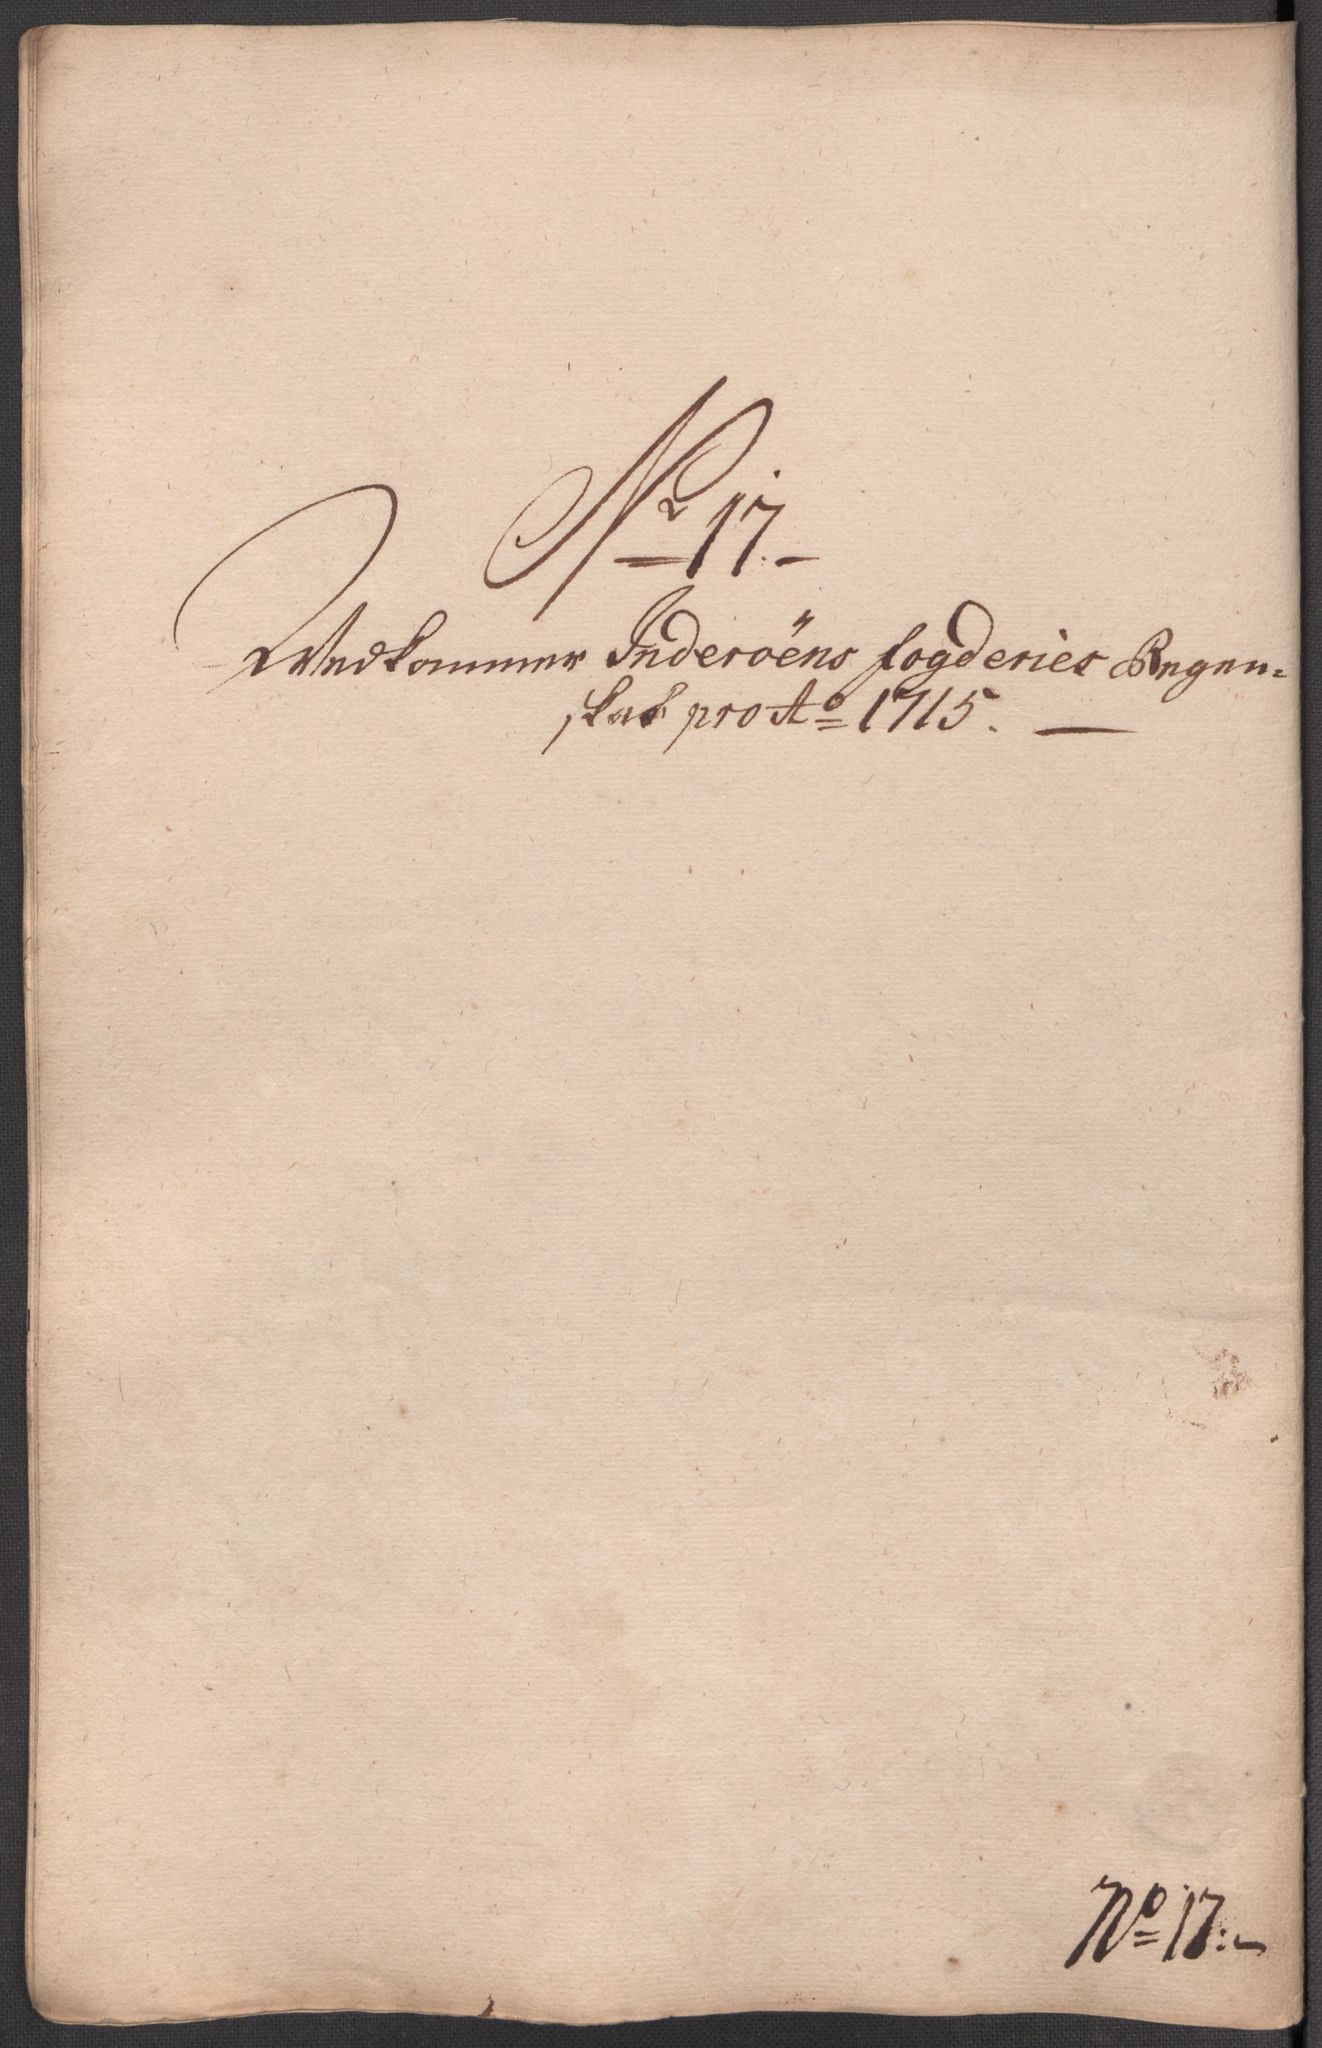 Nr 17.
Vedkommer Inderöens fogderies Regen-
skab pro Ao 1715.
No 17.